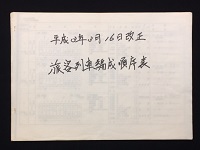 平成 年 月16日改正
旅客列車編成順序表